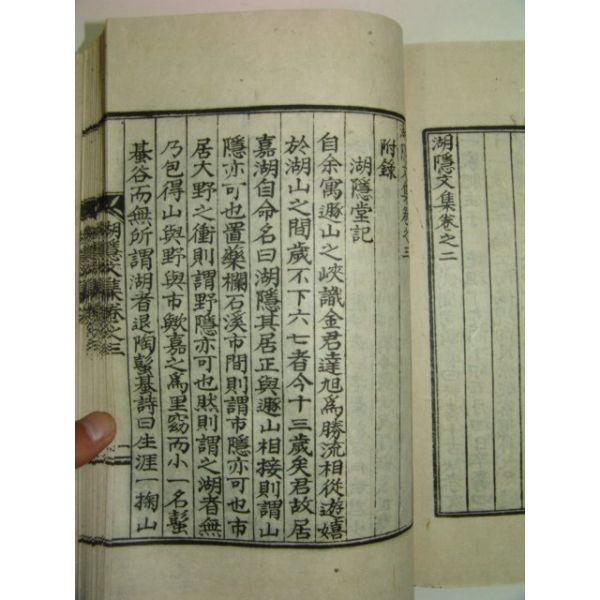 湖隱文集卷之二
湖隱文集卷之三
附錄
湖隱堂記
自余寓遯山之峽識金君達旭爲勝流相從遊嬉
於湖山之間歲不下六七者今十三歲矣君故居
嘉湖自命名曰湖隱其居正與遯山相接則謂山
隱亦可也置藥欄石溪市間則謂市隱亦可也市
居大野之衝則謂野隱亦可也然則謂之湖者無
乃包得山與野與市歟嘉之爲里窈而小一名鬘
碁谷而無所謂湖者退陶鬘碁詩曰生涯一掬山
湖隱文集卷之三